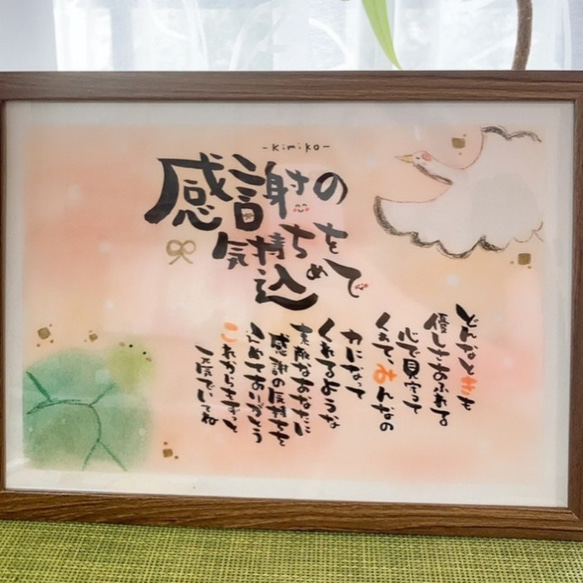 -Kimiko-
感謝の
気持ちを
込めて
どんなときも
優しさあふれる
心で見守って
くれて、みんなの
力になって
くれるような
素敵なあなたに
感謝の気持ちを
込めてありがとう
これからもずっと
元気でいてね